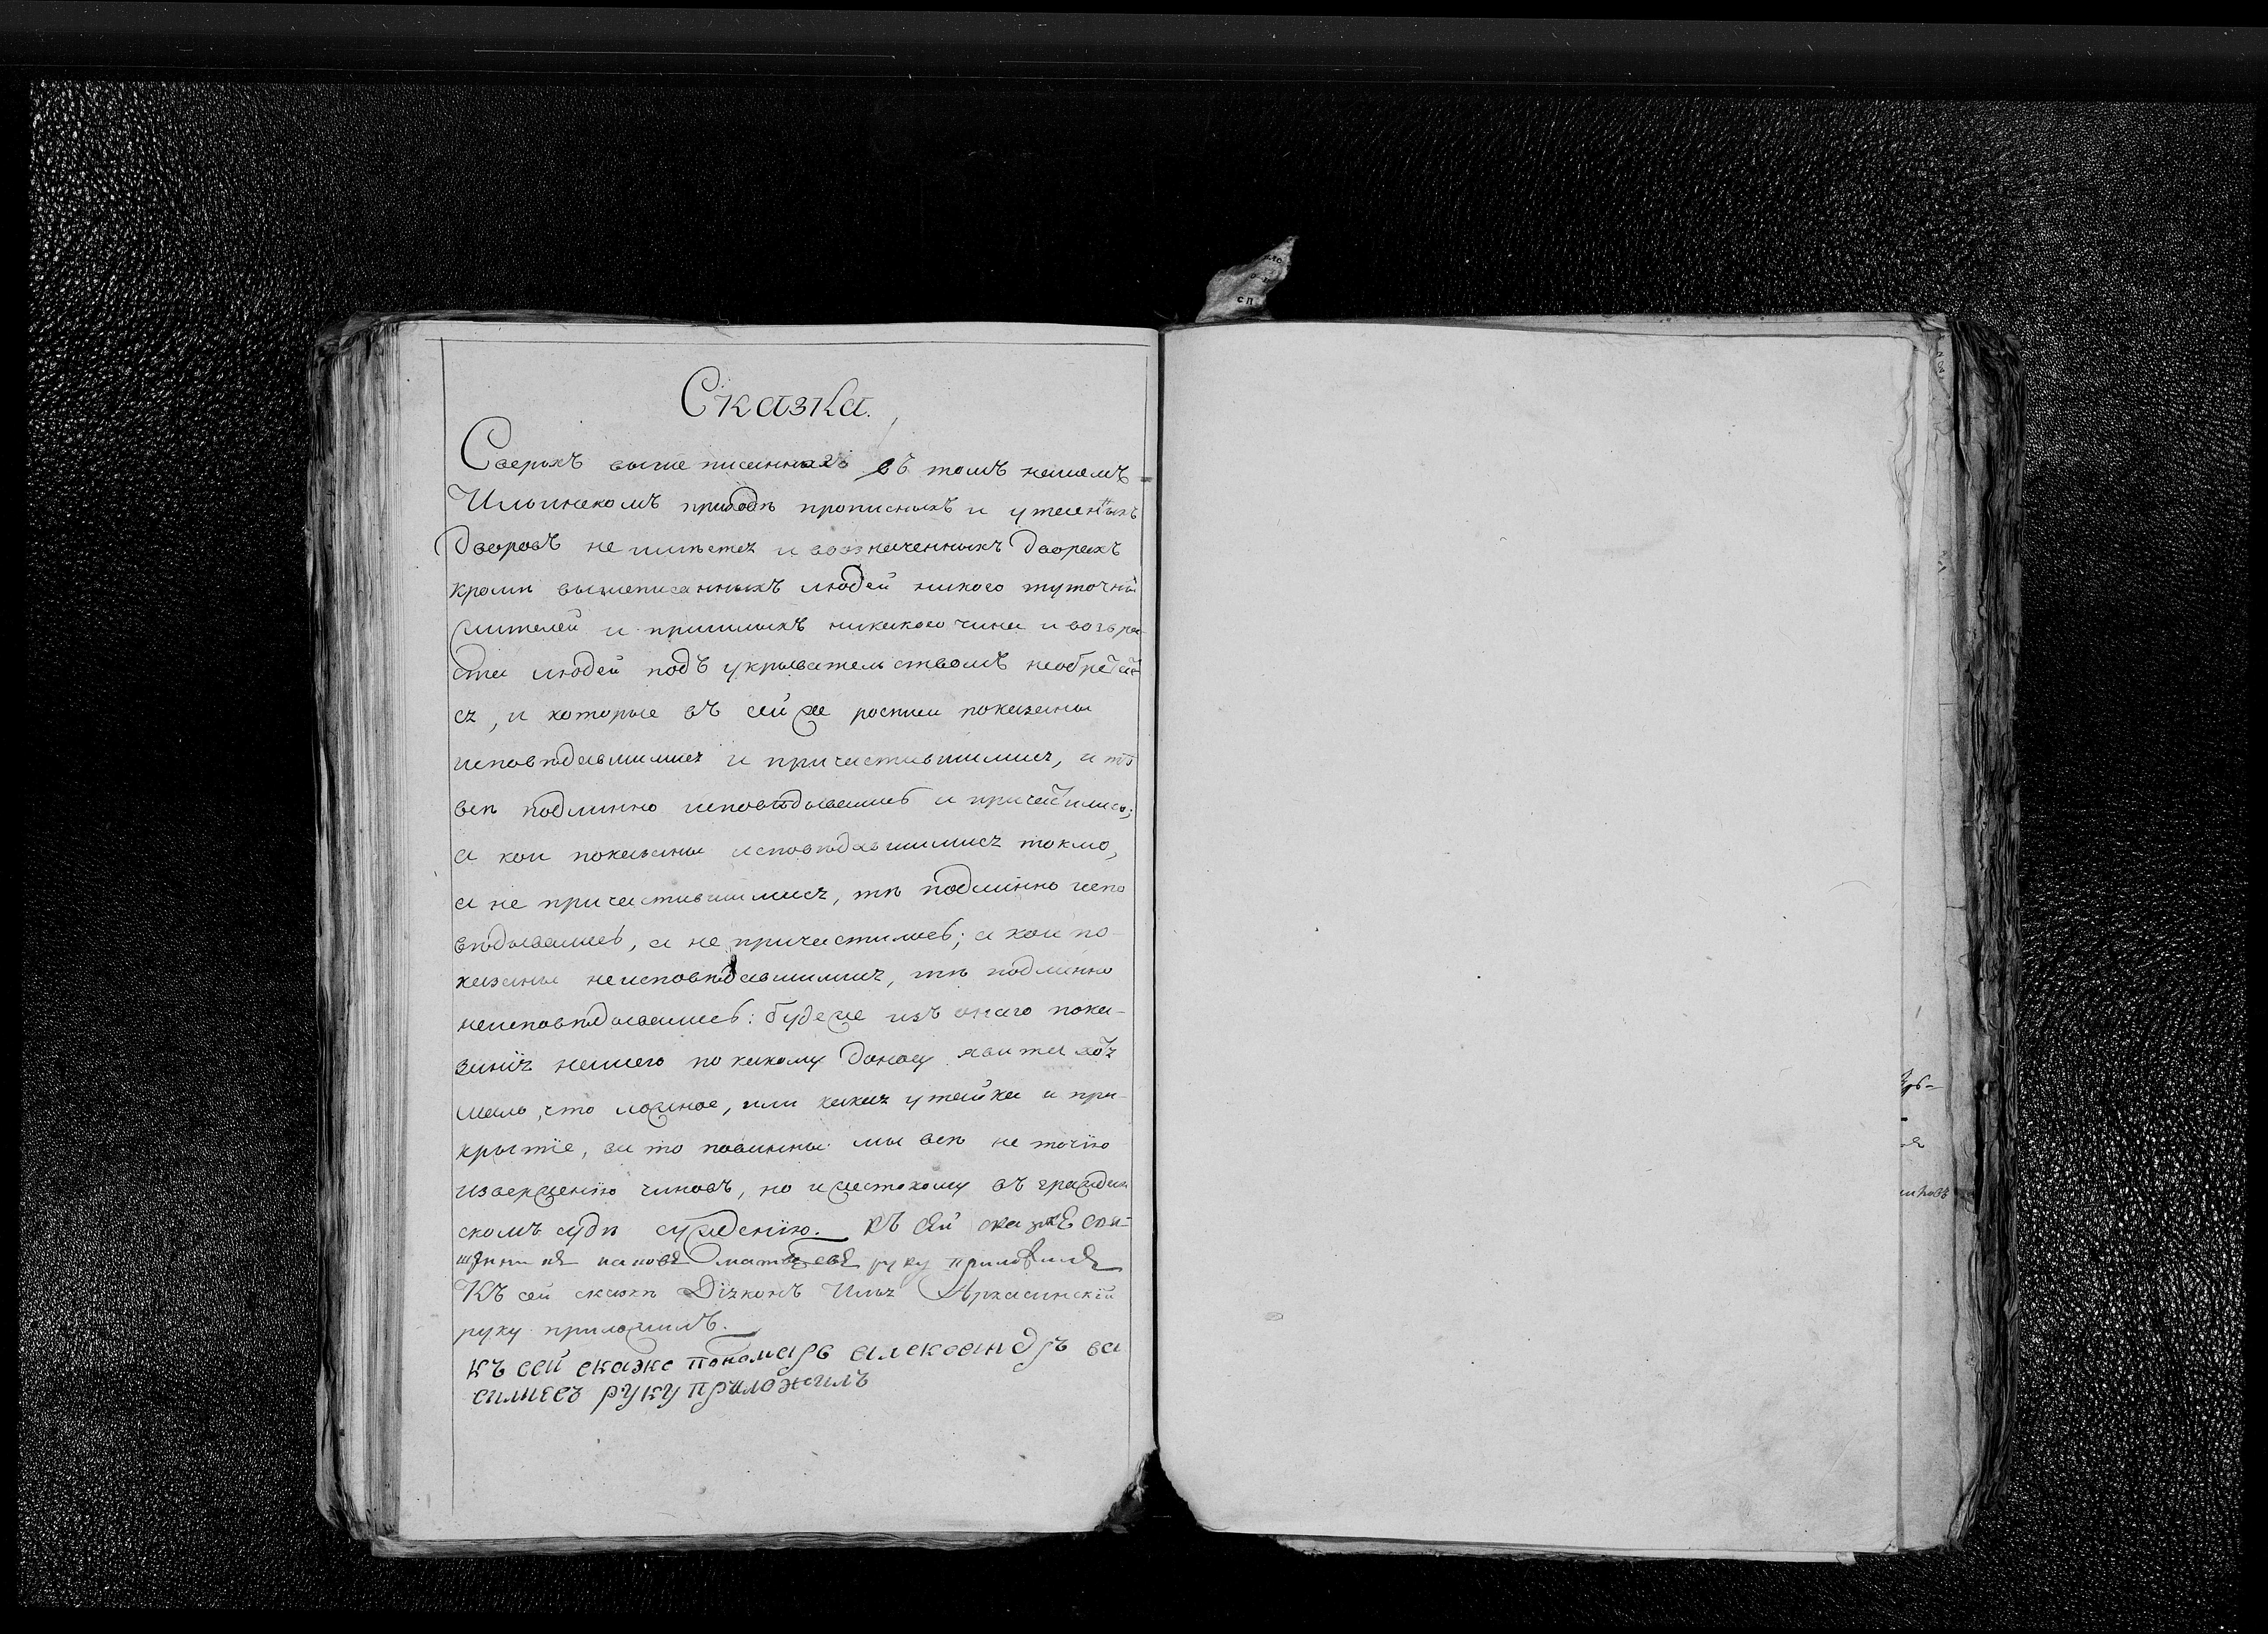 Сказка.
Сверьхъ вышеписанныхъ въ томъ нашемъ
Ильинскомъ приходѣ прописныхъ и утаенныхъ
дворовъ не имѣется и возначенныхъ дворахъ
кромѣ вышеписанныхъ людей никого туточны
жителей и пришлыхъ никакого чина и возра-
ста людей подъ укрывательствомъ необретает
ся, и которые въ сей же росписи показаны
исповѣдавшимися и причастившимися, и тѣ
всѣ подлинно исповѣдывались и причастились;
а кои показаны исповѣдавшимися токмо,
а не причастившимися, тѣ подлинно испо
вѣдывались, а не причастились; а кои по-
казаны неисповѣдавшимися, тѣ подлинно
неисповѣдывались: будеже изъ онаго пока-
занія нашего по какому доносу явится хотя
мало, что ложное, или какая утайка и при-
крытіе, за то повинны мы всѣ не точію
извержению чиновъ, но и жестокому въ граждан
скомъ судѣ суждению. Къ сей сказке свя-
щенникъ матвеевъ руку приложилъ
Къ сей сказкѣ Діяконъ Илья Аркасинскій
руку приложилъ.
къ сей сказке пономарь александръ ва
силиевъ руку приложилъ